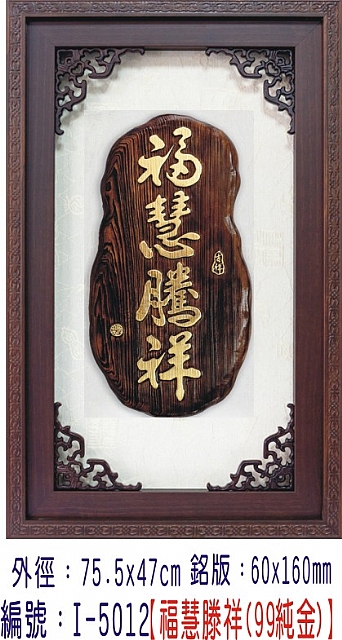 福慧騰祥
外徑：75.5x47cm 銘版：60x160mm
編號：I-5012【福慧滕祥(99純金)】